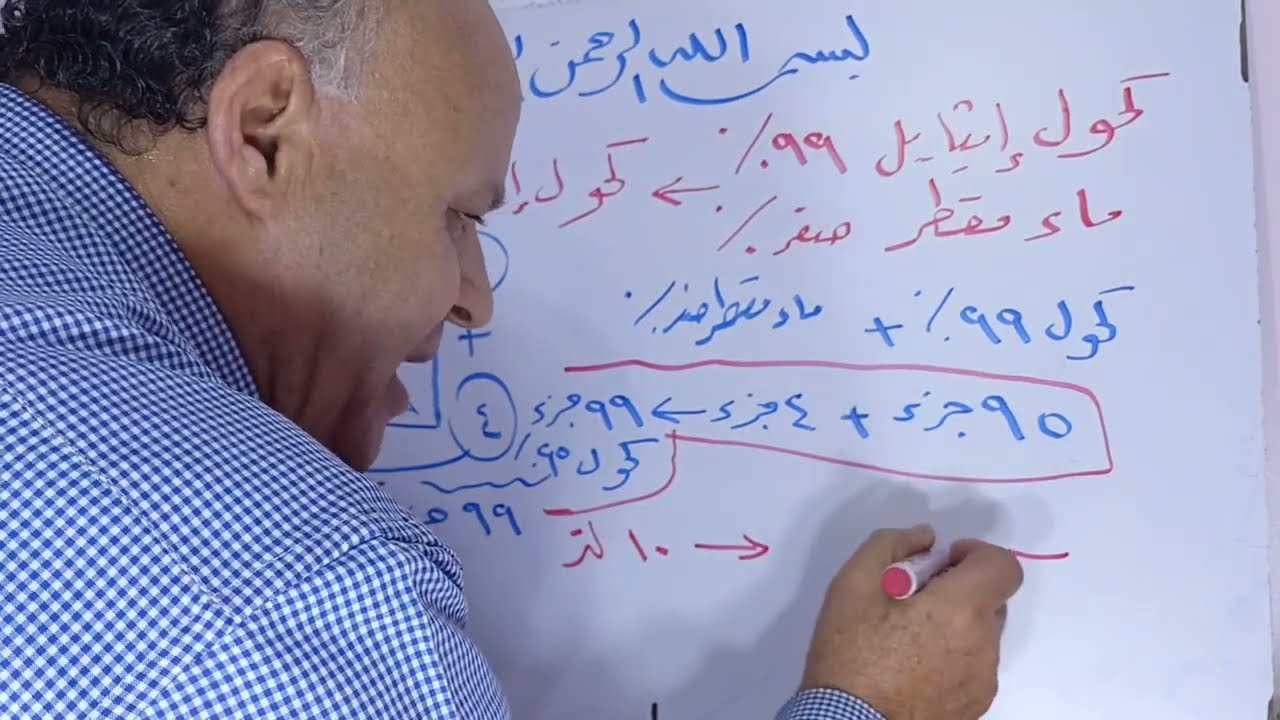 بسم الله الرحمن
كحول إيثايل ٩٩٪ ← كحول إ
ماء مقطر صفر٪
كحول ٩٩٪ + ماء مقطر صفر٪
+
٩٥ جزء + ٤ جزء ← ٩٩ جزء
٤
كحول ٩٥٪
٩٩
١٠ لتر →